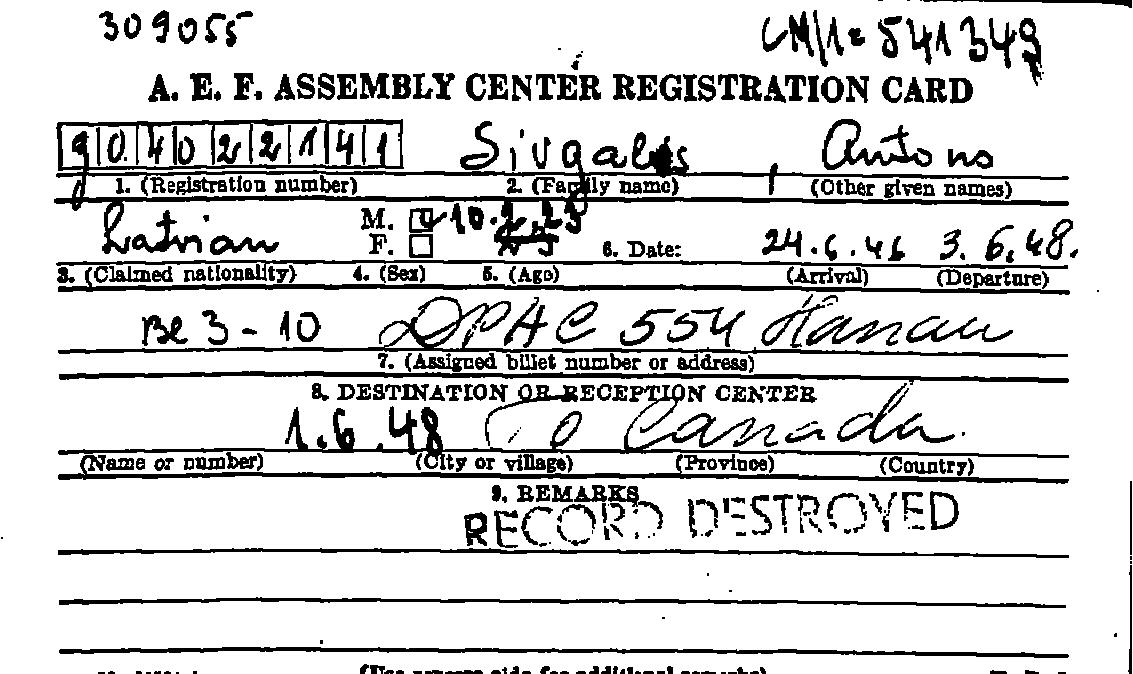 309055 CM/1 = 541349
A. E. F. ASSEMBLY CENTER REGISTRATION CARD
904022141 , Antons
1. (Registration number) 2. (Family name) (Other given names)
Latvian M. 10.2.23
F. 6. Date: 24.6.46 3.6.48.
3. (Claimed nationality) 4. (Sex) 5. (Age) (Arrival) (Departure)
Be 3-10 DPAC 554 Hanau
7. (Assigned billet number or address)
8. DESTINATION OR RECEPTION CENTER
1.6.48 To Canada.
(Name or number) (City or village) (Province) (Country)
9. REMARKS
RECORD DESTROYED